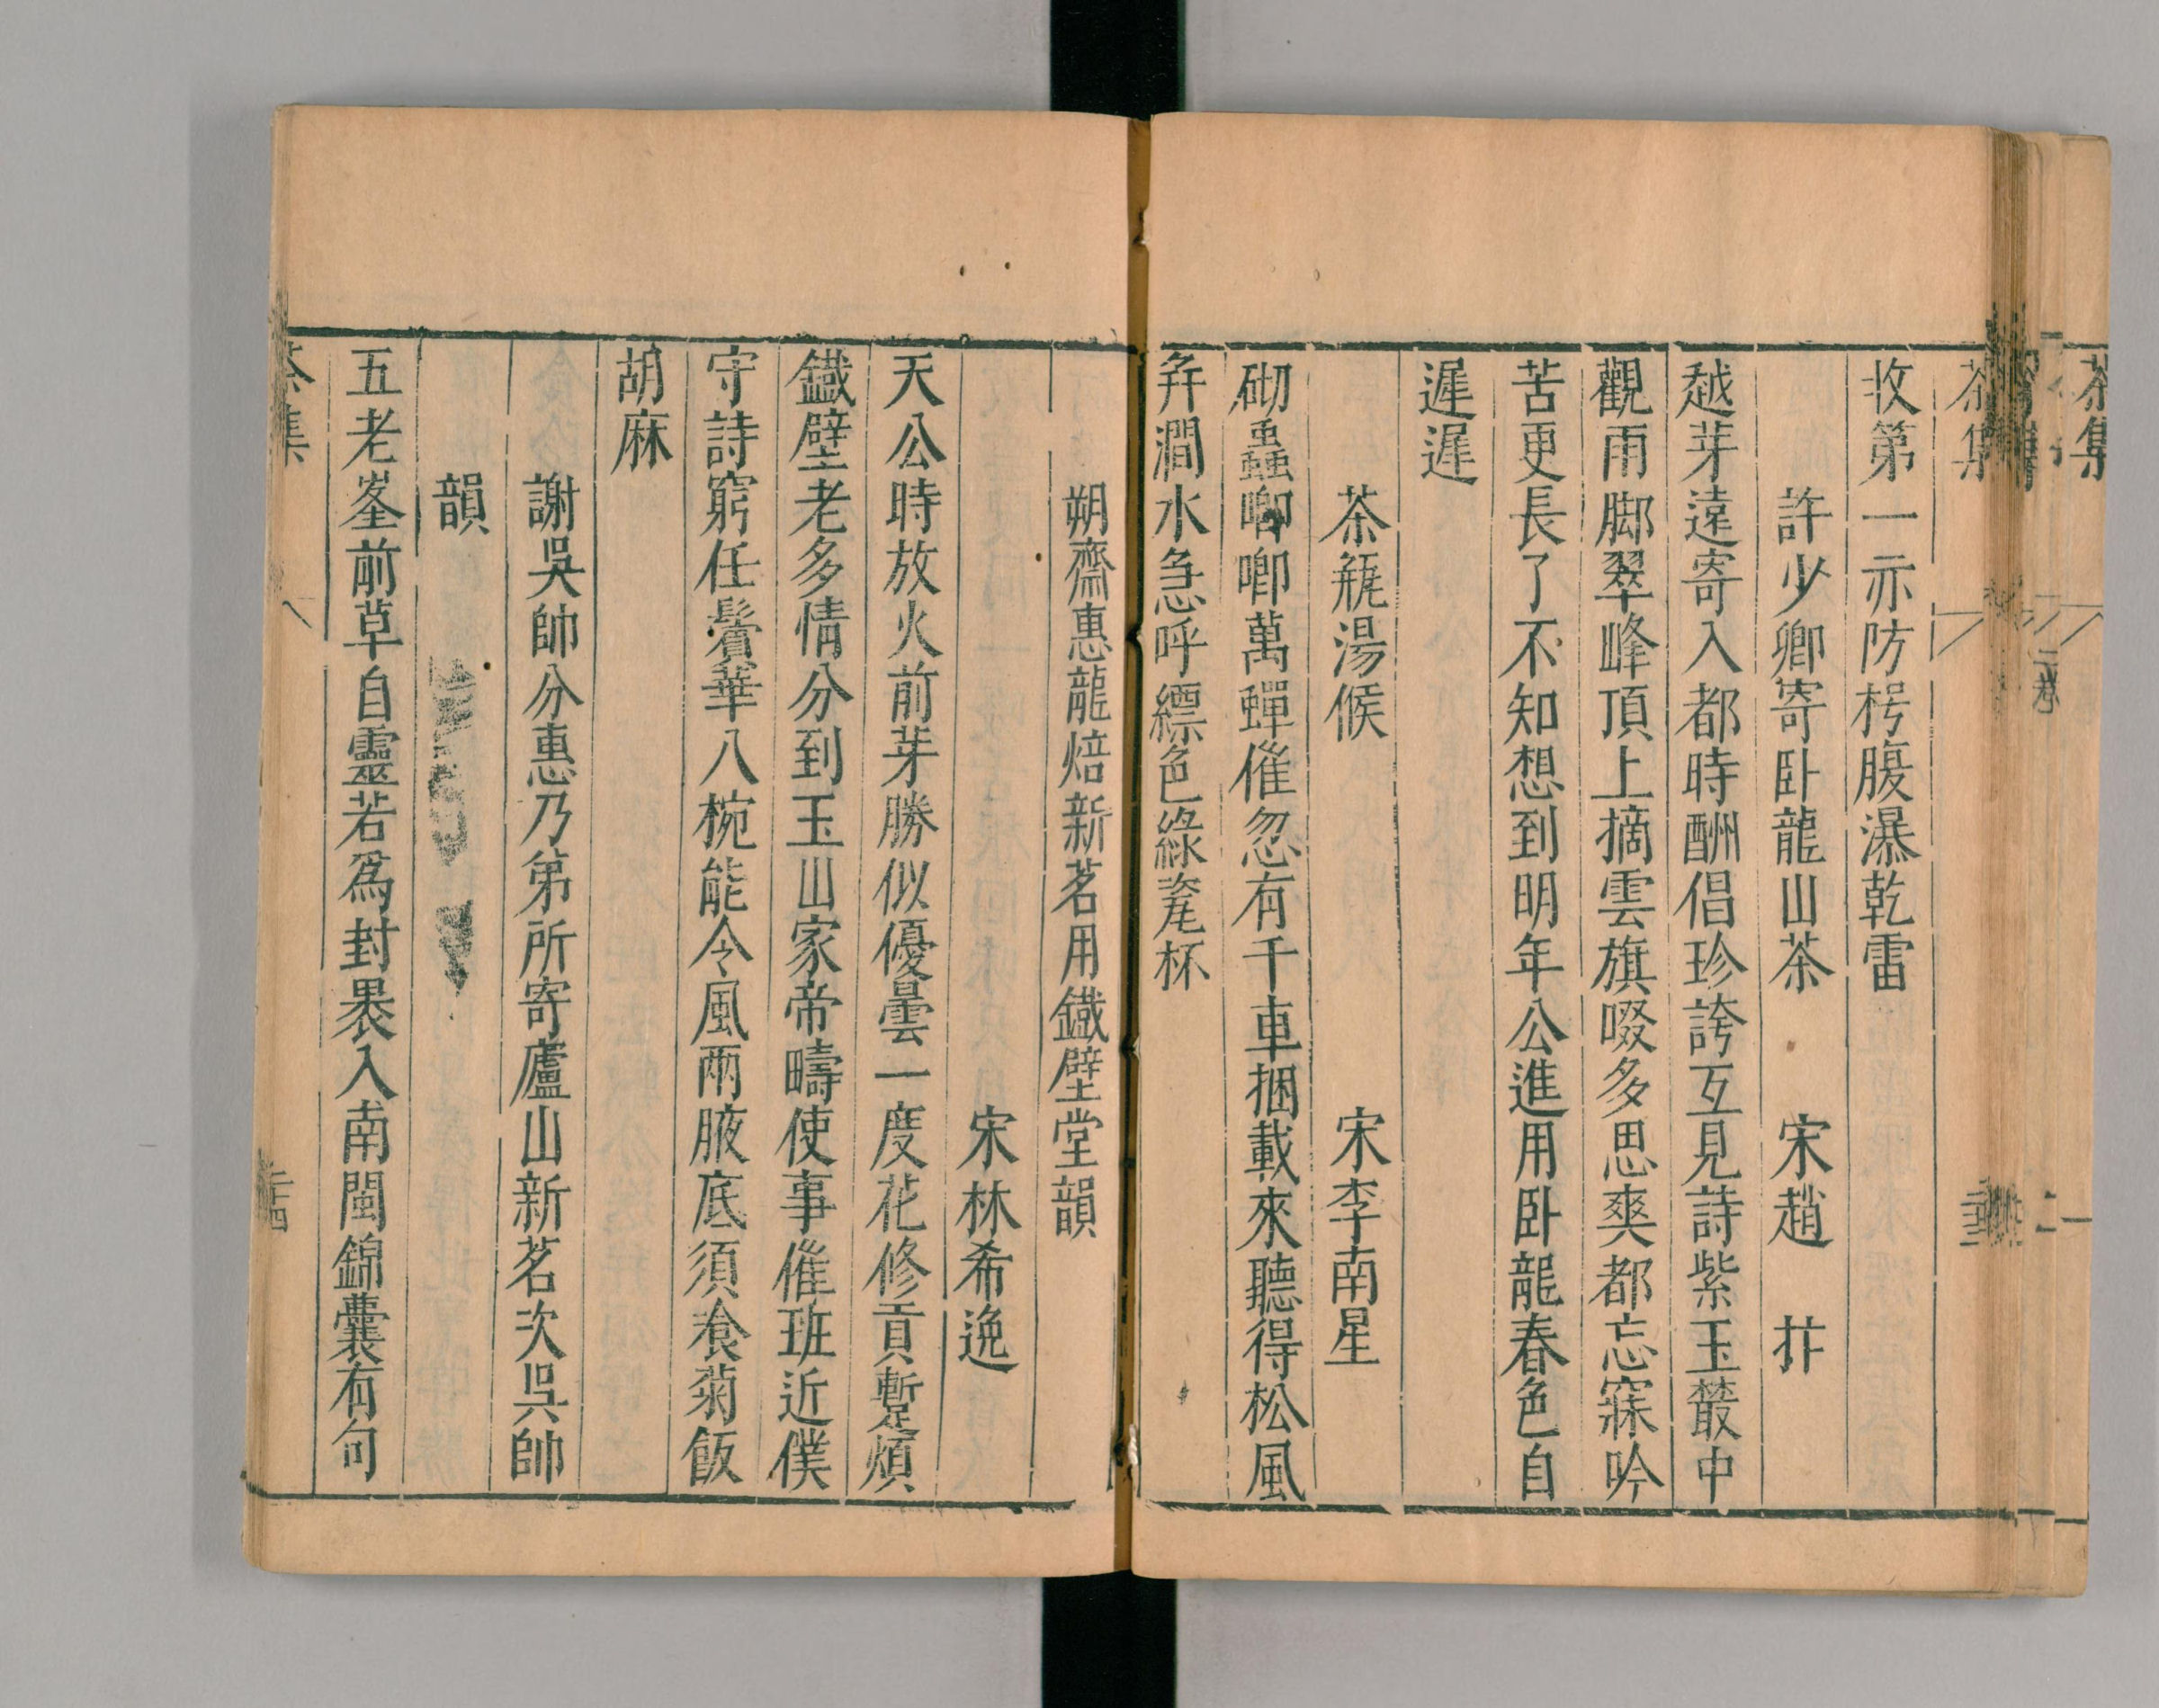 茶集
茶集
牧第一亦防枵腹瀑乾雷
許少卿寄卧龍山茶　宋趙　抃
越芽遠寄入都時酬倡珍誇互見詩紫玉叢中
觀雨脚翠峰頂上摘雲旗啜多思爽都忘寐吟
苦更長了不知想到明年公進用卧龍春色自
遲遲
茶瓶湯候　宋李南星
砌蟲唧唧萬蟬催忽有千車捆載來聽得松風
幷澗水急呼縹色綠瓷杯
朔齋惠龍焙新茗用鐵壁堂韻
宋林希逸
天公時放火前芽勝似優曇一度花修貢暫煩
鐵壁老多情分到玉山家帝疇使事催班近僕
守詩窮任鬢華八椀能令風兩腋底須飡菊飯
胡麻
謝吳帥分惠乃弟所寄廬山新茗次吳帥
韻
五老峯前草自靈若為封裹入南閩錦囊有句
茶集